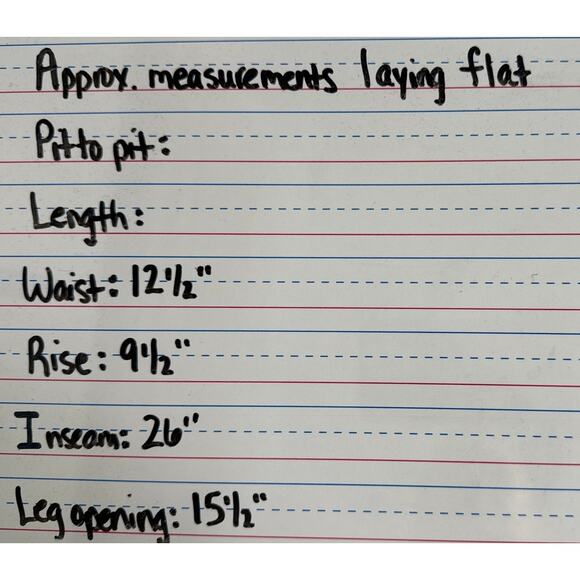 Approx. measurements laying flat
Pit to pit:
Length:
Waist: 12 1/2"
Rise: 9 1/2"
Inseam: 26"
Leg opening: 15 1/2"